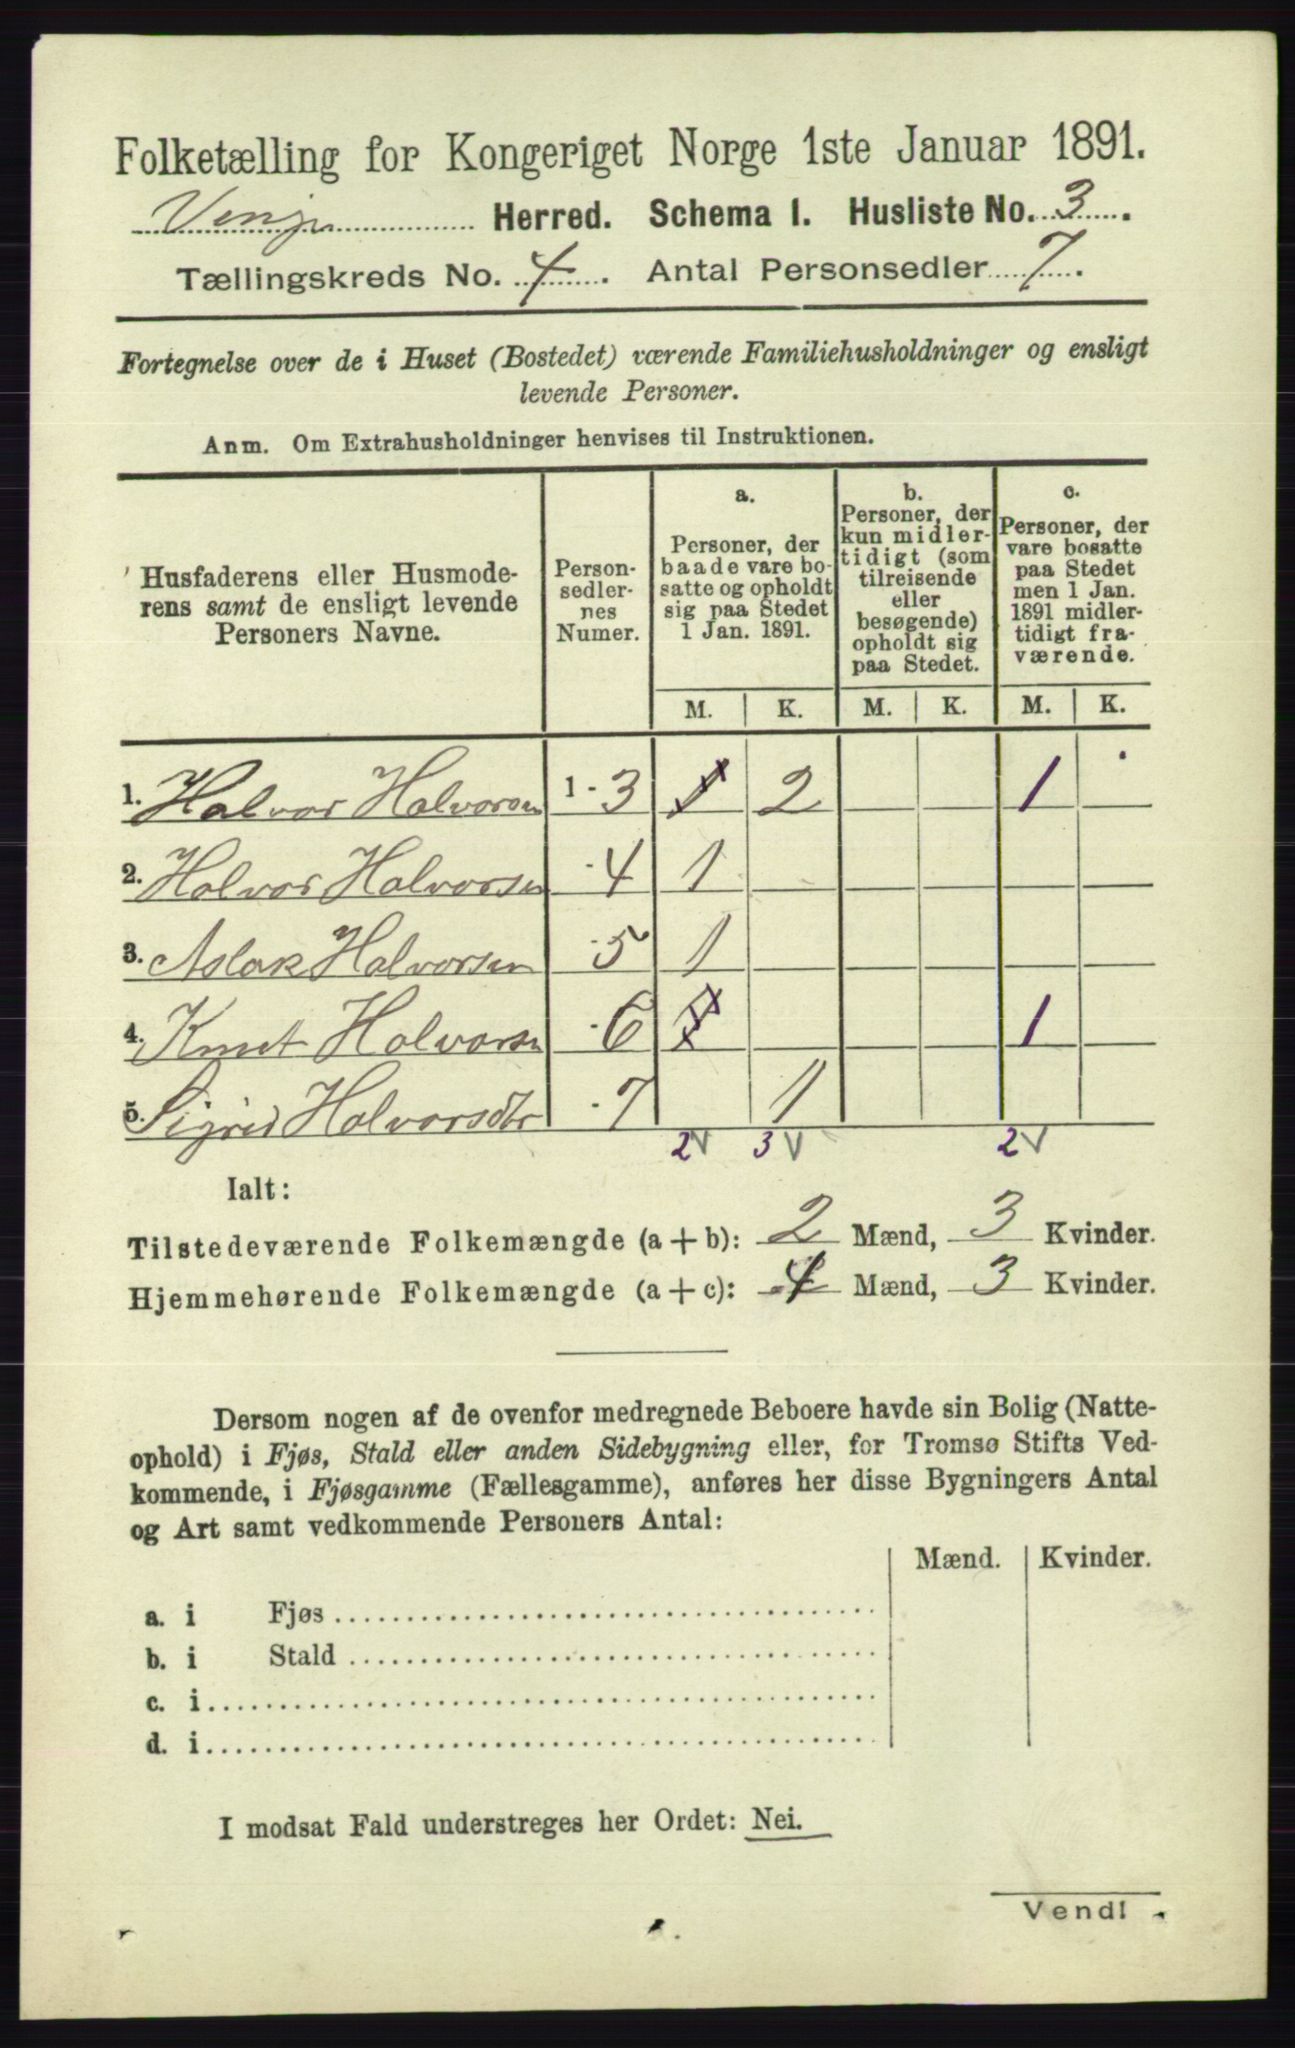 Folketælling for Kongeriget Norge 1ste Januar 1891.
Vinje Herred. Schema 1. Husliste No. 3.
Tællingskreds No. 4. Antal Personsedler 7.
Fortegnelse over de i Huset (Bostedet) værende Familiehusholdninger og ensligt
levende Personer.
Anm. Om Extrahusholdninger henvises til Instruktionen.
Husfaderens eller Husmode-
rens samt de ensligt levende
Personers Navne.
Person-
sedler-
nes
Numer.
a.
Personer, der
baade vare bo-
satte og opholdt
sig paa Stedet
1 Jan. 1891.
b.
Personer, der
kun midler-
tidigt (som
tilreisende
eller
besøgende)
opholdt sig
paa Stedet.
c.
Personer, der
vare bosatte
paa Stedet
men 1 Jan.
1891 midler-
tidigt fra-
værende.
M. K. M. K. M. K.
1. Halvor Halvorsen 1-3 1 2 1
2. Halvor Halvorsen -4 1
3. Aslak Halvorsen -5 1
4. Knut Halvorsen -6 1 1
5. Sigrid Halvorsdtr -7 1
2 V 3 V 2 V
Ialt:
Tilstedeværende Folkemængde (a+b): 2 Mænd, 3 Kvinder.
Hjemmehørende Folkemængde (a+c): 4 Mænd, 3 Kvinder.
Dersom nogen af de ovenfor medregnede Beboere havde sin Bolig (Natte-
ophold) i Fjøs, Stald eller anden Sidebygning eller, for Tromsø Stifts Ved-
kommende, i Fjøsgamme (Fællesgamme), anføres her disse Bygningers Antal
og Art samt vedkommende Personers Antal:
Mænd. Kvinder.
a. i Fjøs
b. i Stald
c. i
d. i
I modsat Fald understreges her Ordet: Nei.
Vend!